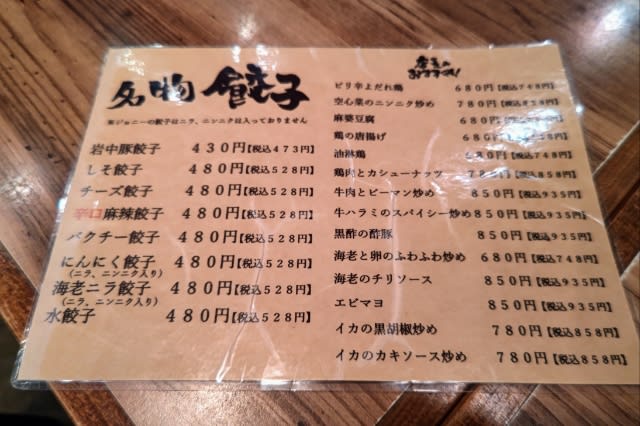 名物 餃子
※ジョニーの餃子はニラ、ニンニクは入っておりません
岩中豚餃子 430円【税込473円】
しそ餃子 480円【税込528円】
チーズ餃子 480円【税込528円】
辛口麻辣餃子 480円【税込528円】
パクチー餃子 480円【税込528円】
にんにく餃子 480円【税込528円】
(ニラ、ニンニク入り)
海老ニラ餃子 480円【税込528円】
(ニラ、ニンニク入り)
水餃子 480円【税込528円】
店主のおすすめ!
ピリ辛よだれ鶏 680円【税込748円】
空心菜のニンニク炒め 780円【税込858円】
麻婆豆腐 680円【税込748円】
鶏の唐揚げ 680円【税込748円】
油淋鶏 680円【税込748円】
鶏肉とカシューナッツ 780円【税込858円】
牛肉とピーマン炒め 850円【税込935円】
牛ハラミのスパイシー炒め 850円【税込935円】
黒酢の酢豚 850円【税込935円】
海老と卵のふわふわ炒め 680円【税込748円】
海老のチリソース 850円【税込935円】
エビマヨ 850円【税込935円】
イカの黒胡椒炒め 780円【税込858円】
イカのカキソース炒め 780円【税込858円】